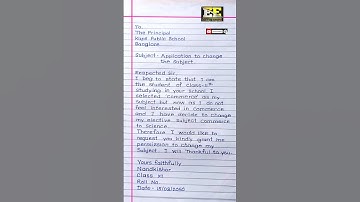 EE
To
The Principal
Public School
Banglore
Subject - Application to change
the Subject.
Respected Sir,
I beg to state that I am
the student of class-11th
studying in your school I
selected commerce as my
subject but now as I do not
feel interested in commerce
and I have decide to change
my elective subject commerce
to Science.
Therefore I would like to
request you kindly grant me
permission to change my
Subject. I will Thankful to you.
Yours Faithfully
Nandkishor
Class XI
Roll No
Date -